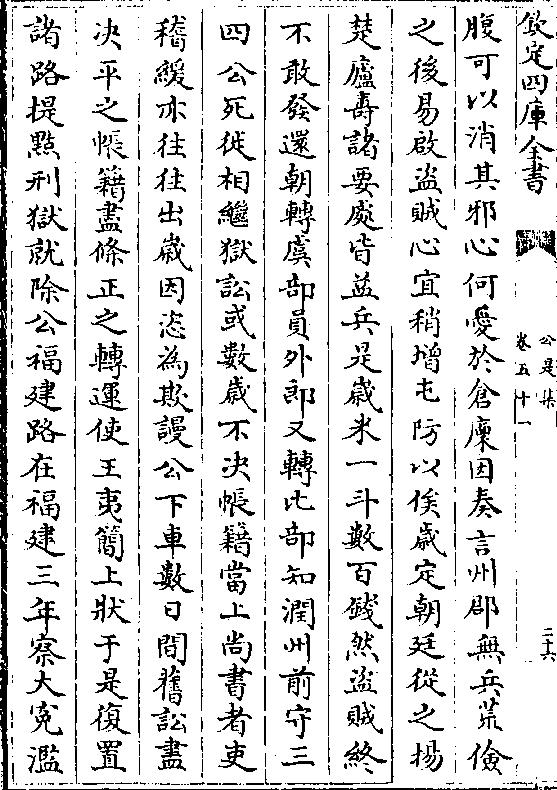 欽定四庫全書
公是集
卷五十一
二十六
腹可以消其邪心何愛於倉廩因奏言州郡無兵荒儉
之後易啟盜賊心宜稍增屯防以俟歲定朝廷從之揚
楚廬壽諸要處皆益兵是歲米一斗數百錢然盜賊終
不敢發還朝轉虞部員外郎又轉比部知潤州前守三
四公死徙相繼獄訟或數歲不決帳籍當上尚書者吏
稽緩亦往往出歲因恣為欺謾公下車數日間舊訟盡
决平之帳籍盡條正之轉運使王夷簡上狀于是復置
諸路提㸃刑獄就除公福建路在福建三年察大寃濫